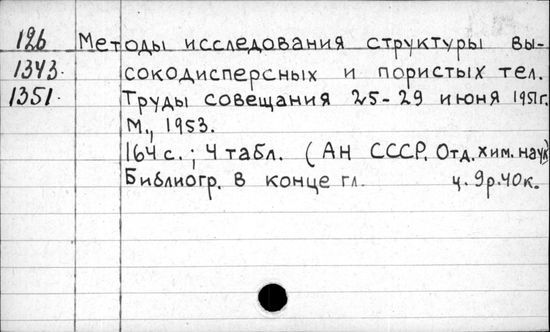 126 Методы исследования структуры вы-
1343. сокодисперсных и пористых тел.
1351. Труды совещания 25-29 июня 1951г.
М., 1953.
164 с.; 4 табл. (АН СССР. Отд. хим. наук)
Библиогр. в конце гл. ц. 9р.40к.